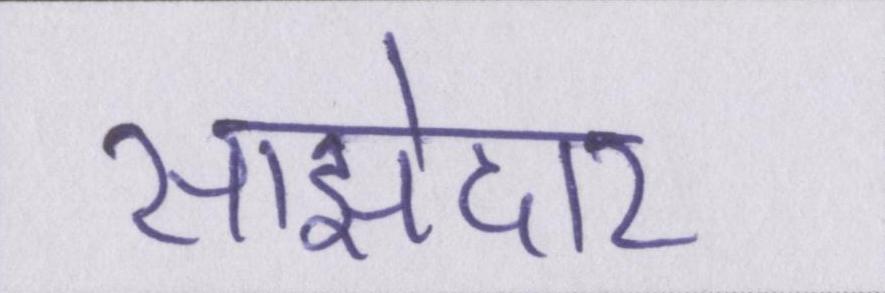 साझेदार